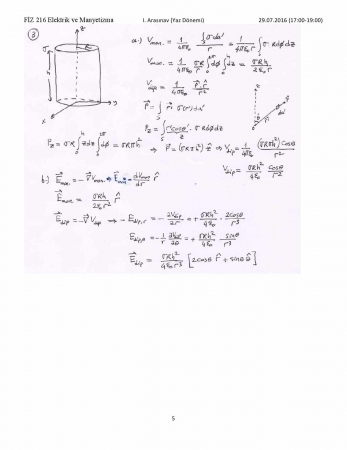 FİZ 216 Elektrik ve Manyetizma I. Arasınav (Yaz Dönemi) 29.07.2016 (17:00-19:00)
3
z
σ
h
y
x
a-) V_mon. = 1/4πε₀ ∫σda'/r = 1/4πε₀r ∫σ. Rdϕdz
V_mon. = 1/4πε₀ σR/r ∫₀^2π dϕ ∫₀^h dz = σRh/2ε₀r
V_dip = 1/4πε₀ P⃗.r̂/r²
P⃗ = ∫_s r⃗' σ(r') da'
P_z = ∫ r'cosθ'. σ Rdϕdz
P_z = σR ∫₀^h zdz ∫₀^2π dϕ = σRπh² ⇒ P⃗ = (σRπh²) ẑ ⇒ V_dip = 1/4πε₀ (σRπh²) cosθ/r²
V_dip = σRh²/4ε₀ cosθ/r²
b-) E⃗_mon. = -∇⃗V_mon. ⇒ E⃗_mon = -dV_mon/dr r̂
E⃗_mon. = σRh/2ε₀r² r̂
E⃗_dip = -∇⃗V_dip ⇒ E_dip,r = -∂V_dip/∂r = + σRh²/4ε₀ 2cosθ/r³
E_dip,θ = -1/r ∂V_dip/∂θ = + σRh²/4ε₀ sinθ/r³
E⃗_dip = σRh²/4ε₀r³ [2cosθ r̂ + sinθ θ̂]
5